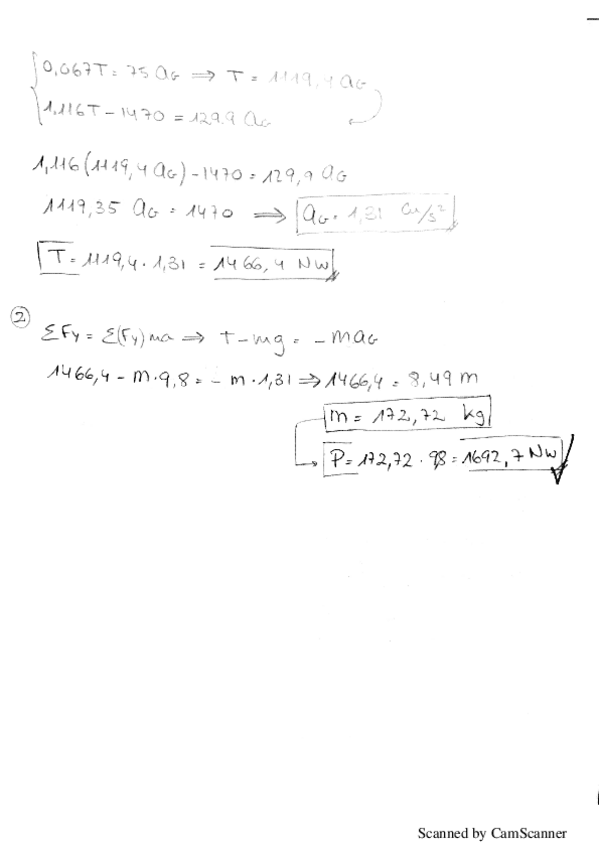 0,067T = 75 aG ⇒ T = 1119,4 aG
1,116T - 1470 = 129,9 aG
1,116(1119,4 aG) - 1470 = 129,9 aG
1119,35 aG = 1470 ⇒ aG = 1,31 m/s²
T = 1119,4 · 1,31 = 1466,4 Nw
②
ΣFy = Σ(Fy)ma ⇒ T - mg = - maG
1466,4 - m·9,8 = - m·1,31 ⇒ 1466,4 = 8,49 m
m = 172,72 kg
P = 172,72 · 9,8 = 1692,7 Nw
Scanned by CamScanner